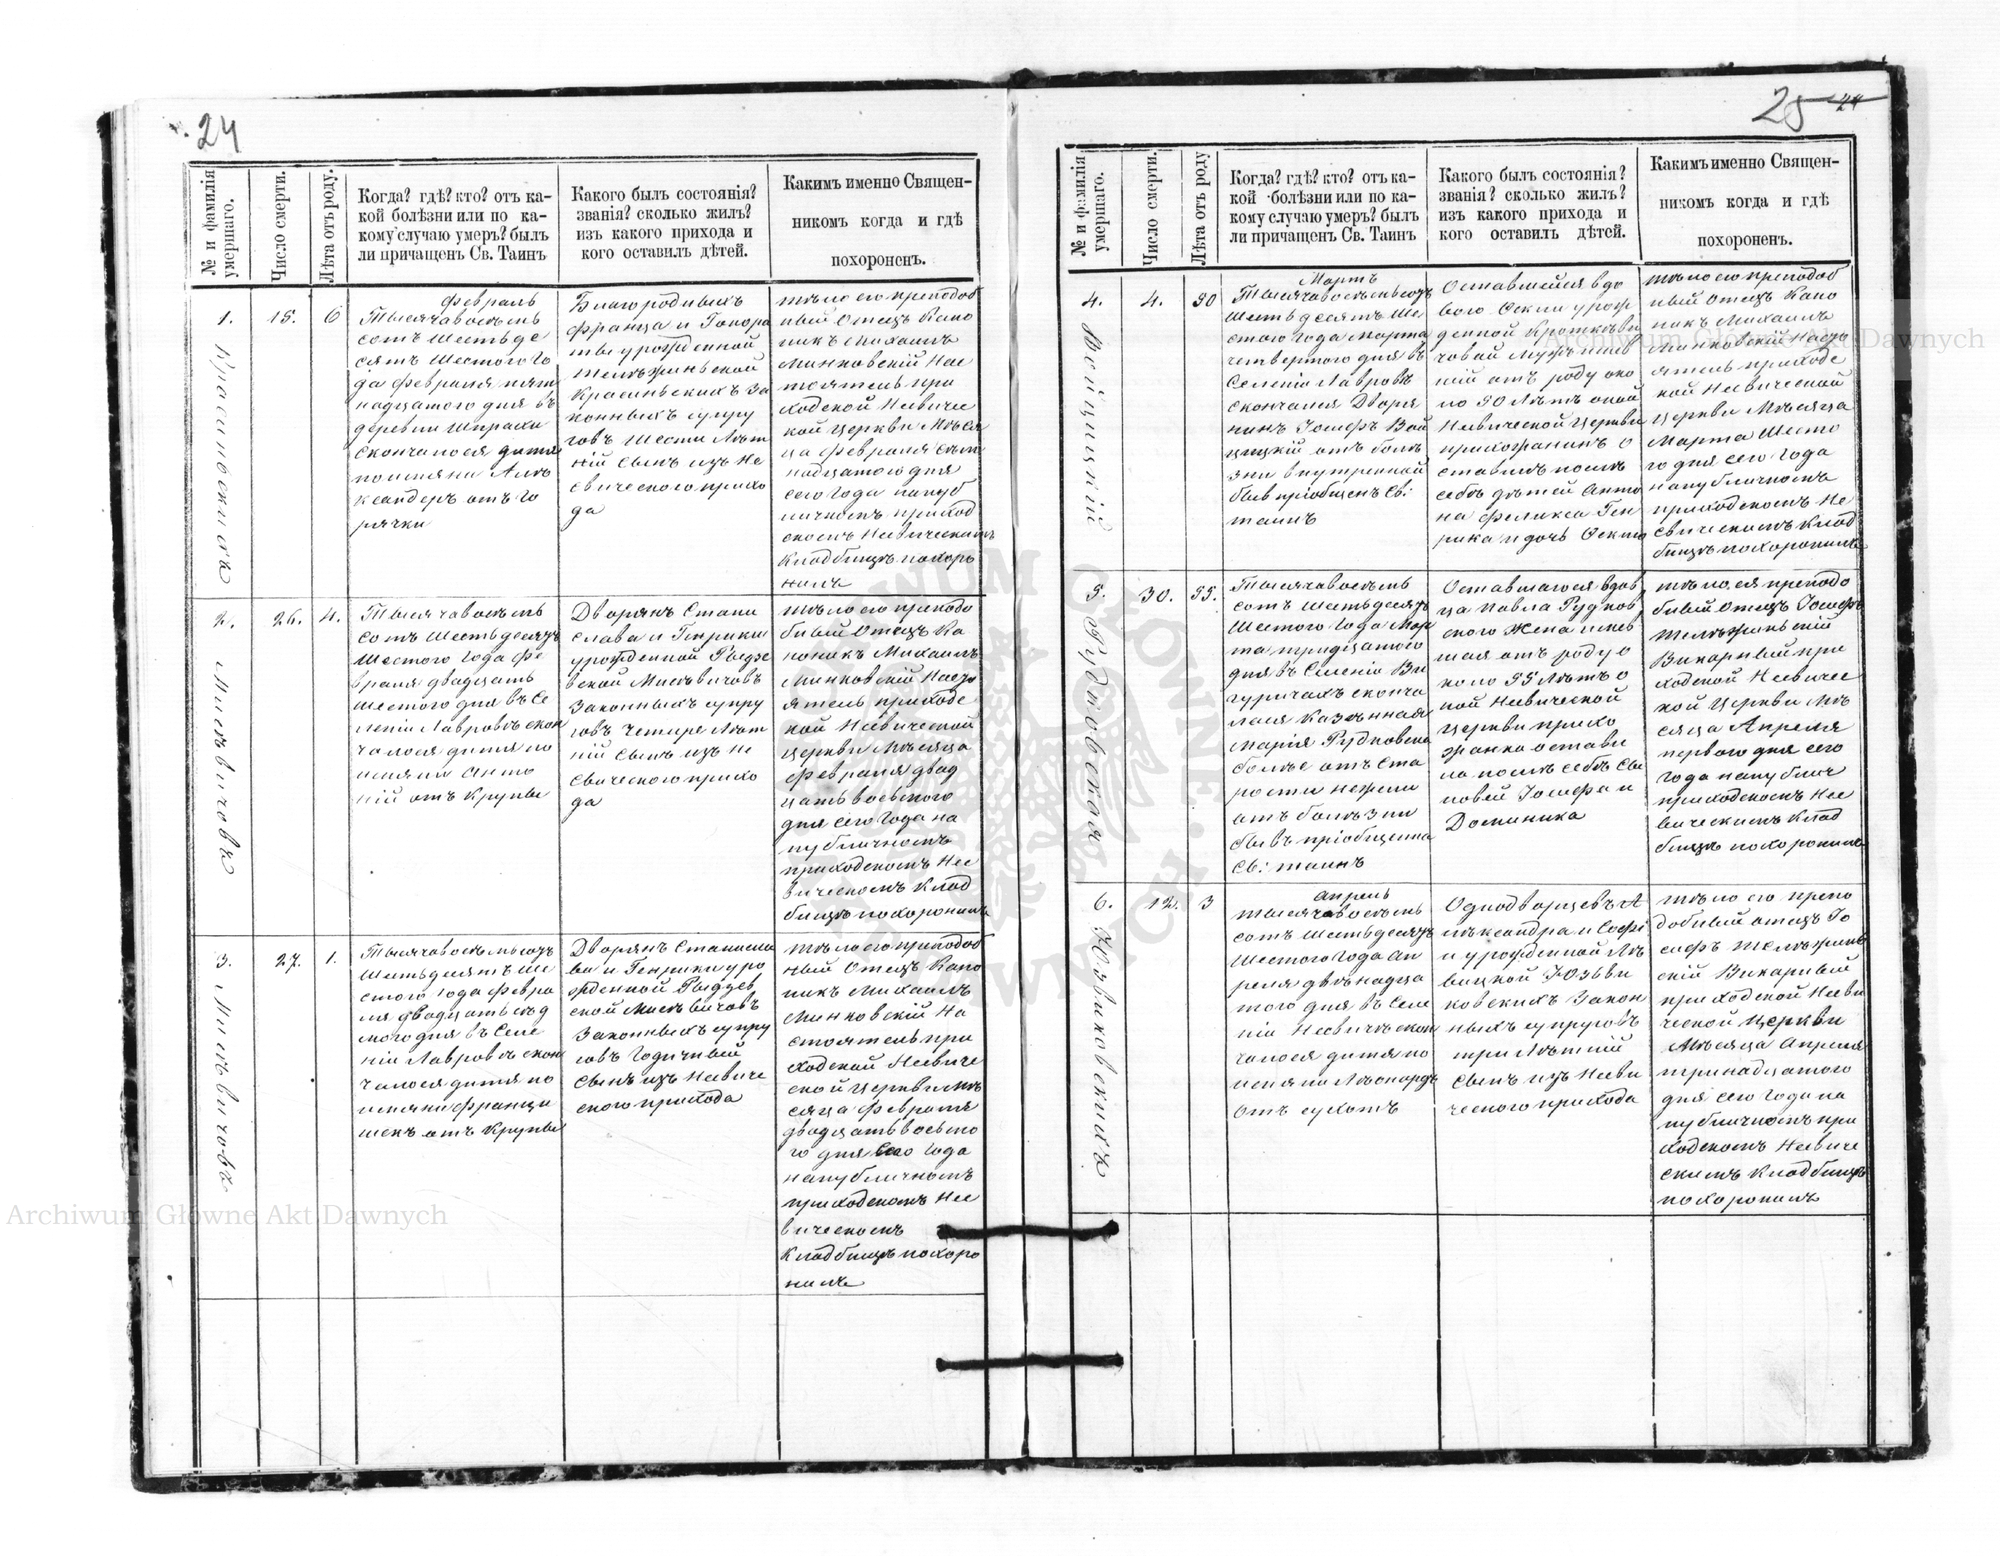 24
№ и фамилія умершаго.
Число смерти.
Лѣта отъ роду.
Когда? гдѣ? кто? отъ ка-
кой болѣзни или по ка-
кому случаю умеръ? былъ
ли причащенъ Св. Таинъ
Какого былъ состоянія?
званія? сколько жилъ?
изъ какого прихода и
кого оставилъ дѣтей.
Какимъ именно Священ-
никомъ когда и гдѣ
похороненъ.
1.
15.
6
Февраль
Тысяча восемь
сотъ шестьде
сятъ шестого го
да февраля пят
надцатого дня въ
деревни
скончалося дитя
по имяни Але
ксандеръ отъ го
рячки
Благородныхъ
Франца и Гонора
ты урожденной
Желѣжинской
Красиньскихъ за
конныхъ супру
говъ шести лѣт
ній сынъ изъ Не
свического прихо
да
тѣло его преподоб
ный Отецъ Кано
никъ Михаилъ
Минковскій Нас
тоятель при
ходской Несвиче
кой церкви мѣся
ца февраля семь
надцатого дня
сего года на пуб
личномъ приход
скомъ Несвическимъ
кладбищѣ похоро
нилъ
2.
Мисѣвичовъ
26.
4.
Тысяча восемь
сотъ шестьдесятъ
шестого года фе
враля двадцать
шестого дня въ се
леніи Лавровѣ скон
чалося дитя по
имяни Анто
ній отъ крупы
Дворянъ Стани
слава и Генрики
урожденной Рыдзе
вской Мисѣвичовъ
законныхъ супру
говъ четыре лѣт
ній сынъ изъ Не
свического прихо
да
тѣло его преподо
бный Отецъ Ка
ноникъ Михаилъ
Минковскій Насто
ятель приходс
кой Несвической
церкви мѣсяца
февраля двад
цать восьмого
дня сего года на
публичномъ
приходскомъ Нес
вическомъ клад
бищѣ похоронилъ
3.
Мисѣвичовъ
27.
1.
Тысяча восемьсотъ
шестьдесятъ ше
стого года февра
ля двадцать сед
мого дня въ селе
ніи Лавровѣ скон
чалося дитя по
имяни Франци
шекъ отъ крупы
Дворянъ Станисла
ва и Генрики уро
жденной Рыдзев
ской Мисѣвичовъ
законныхъ супру
говъ годичный
сынъ изъ Несвиче
ского прихода
тѣло его преподоб
ный Отецъ Кано
никъ Михаилъ
Минковскій На
стоятель при
ходской Несвиче
ской церкви мѣ
сяца февраля
двадцать восьмо
го дня сего года
на публичномъ
приходскомъ Нес
вическомъ
кладбищѣ похоро
нилъ
25 24
№ и фамилія умершаго.
Число смерти.
Лѣта отъ роду
Когда? гдѣ? кто? отъ ка-
кой болѣзни или по ка-
кому случаю умеръ? былъ
ли причащенъ Св. Таинъ
Какого былъ состоянія?
званія? сколько жилъ?
изъ какого прихода и
кого оставилъ дѣтей.
Какимъ именно Священ-
никомъ когда и гдѣ
похороненъ.
4.
Войцицкій
4.
50
Мартъ
Тысяча восемьсотъ
шестьдесятъ ше
стого года марта
четвертого дня въ
селеніи Лавровѣ
скончался Дворя
нинъ Іосифъ Вой
цицкій отъ болѣ
зни внутренной
бывъ пріобщенъ Св:
таинъ
Оставшейся вдо
вого урож
денной
човой мужъ имѣв
ній отъ роду око
ло 50 лѣтъ оной
Несвической церкви
прихожанинъ о
ставилъ послѣ
себѣ дѣтей Анто
на Феликса Ген
рика и дочь
тѣло его преподоб
ный Отецъ Кано
никъ Михаилъ
Минковскій Насто
ятель приходс
кой Несвической
церкви мѣсяца
марта шесто
го дня сего года
на публичномъ
приходскомъ Не
свическомъ клад
бищѣ похоронилъ
5.
Рудковская
30.
55.
Тысяча восемь
сотъ шестьдесятъ
шестого года мар
та тридцатого
дня въ селеніи Ви
гуричахъ сконча
лася казенная
Марія Рудковска
болѣе отъ ста
рости нежели
отъ болѣзни
бывъ пріобщена
Св: таинъ
Оставшагося вдов
ца Павла Рудков
ского жена имев
шая отъ роду о
коло 55 лѣтъ о
ной Несвической
церкви прихо
жанка остави
ла послѣ себѣ сы
новей Іосифа и
Доминика
тѣло ея преподо
бный Отецъ Іосифъ
Желѣжинскій
Викарный при
ходской Несвичес
кой церкви мѣ
сяца Апреля
первого дня сего
года на публич
приходскомъ Нес
вическимъ клад
бищѣ похоронилъ
6.
Юзвиковскихъ
12.
3
Апрель
Тысяча восемь
сотъ шестьдесятъ
шестого года ап
реля двѣнадца
того дня въ селе
ніи Несвичѣ скон
чалося дитя по
имяни Лѣонардъ
отъ сухотъ
Однодворцевъ А
лександра и Софі
и урожденной Ле
вицкой Юзьви
ковскихъ закон
ныхъ супруговъ
три лѣтній
сынъ изъ Несви
ческого прихода
тѣло его препо
добный отецъ Іо
сифъ Желѣжинь
скій Викарный
приходской Несви
ческой церкви
мѣсяца Апреля
тринадцатого
дня сего года на
публичномъ при
ходскомъ Несвиче
скимъ кладбищѣ
похоронилъ
Archiwum Główne Akt Dawnych
Archiwum Główne Akt Dawnych